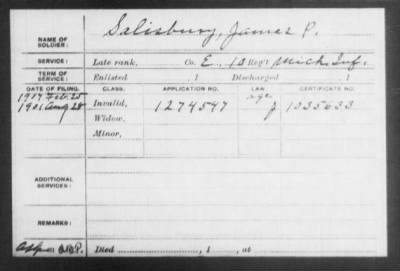 NAME OF SOLDIER: Salisbury, James P.
SERVICE: Late rank, Co. E, 13 Reg't Mich Inf.
TERM OF SERVICE: Enlisted , 1 Discharged , 1
DATE OF FILING. CLASS. APPLICATION NO. LAW. CERTIFICATE NO.
1907 Feb. 25 age
1901 Aug 28 Invalid, 1274547 J 1035633
Widow,
Minor,
ADDITIONAL SERVICES:
REMARKS:
Died , 1 , at